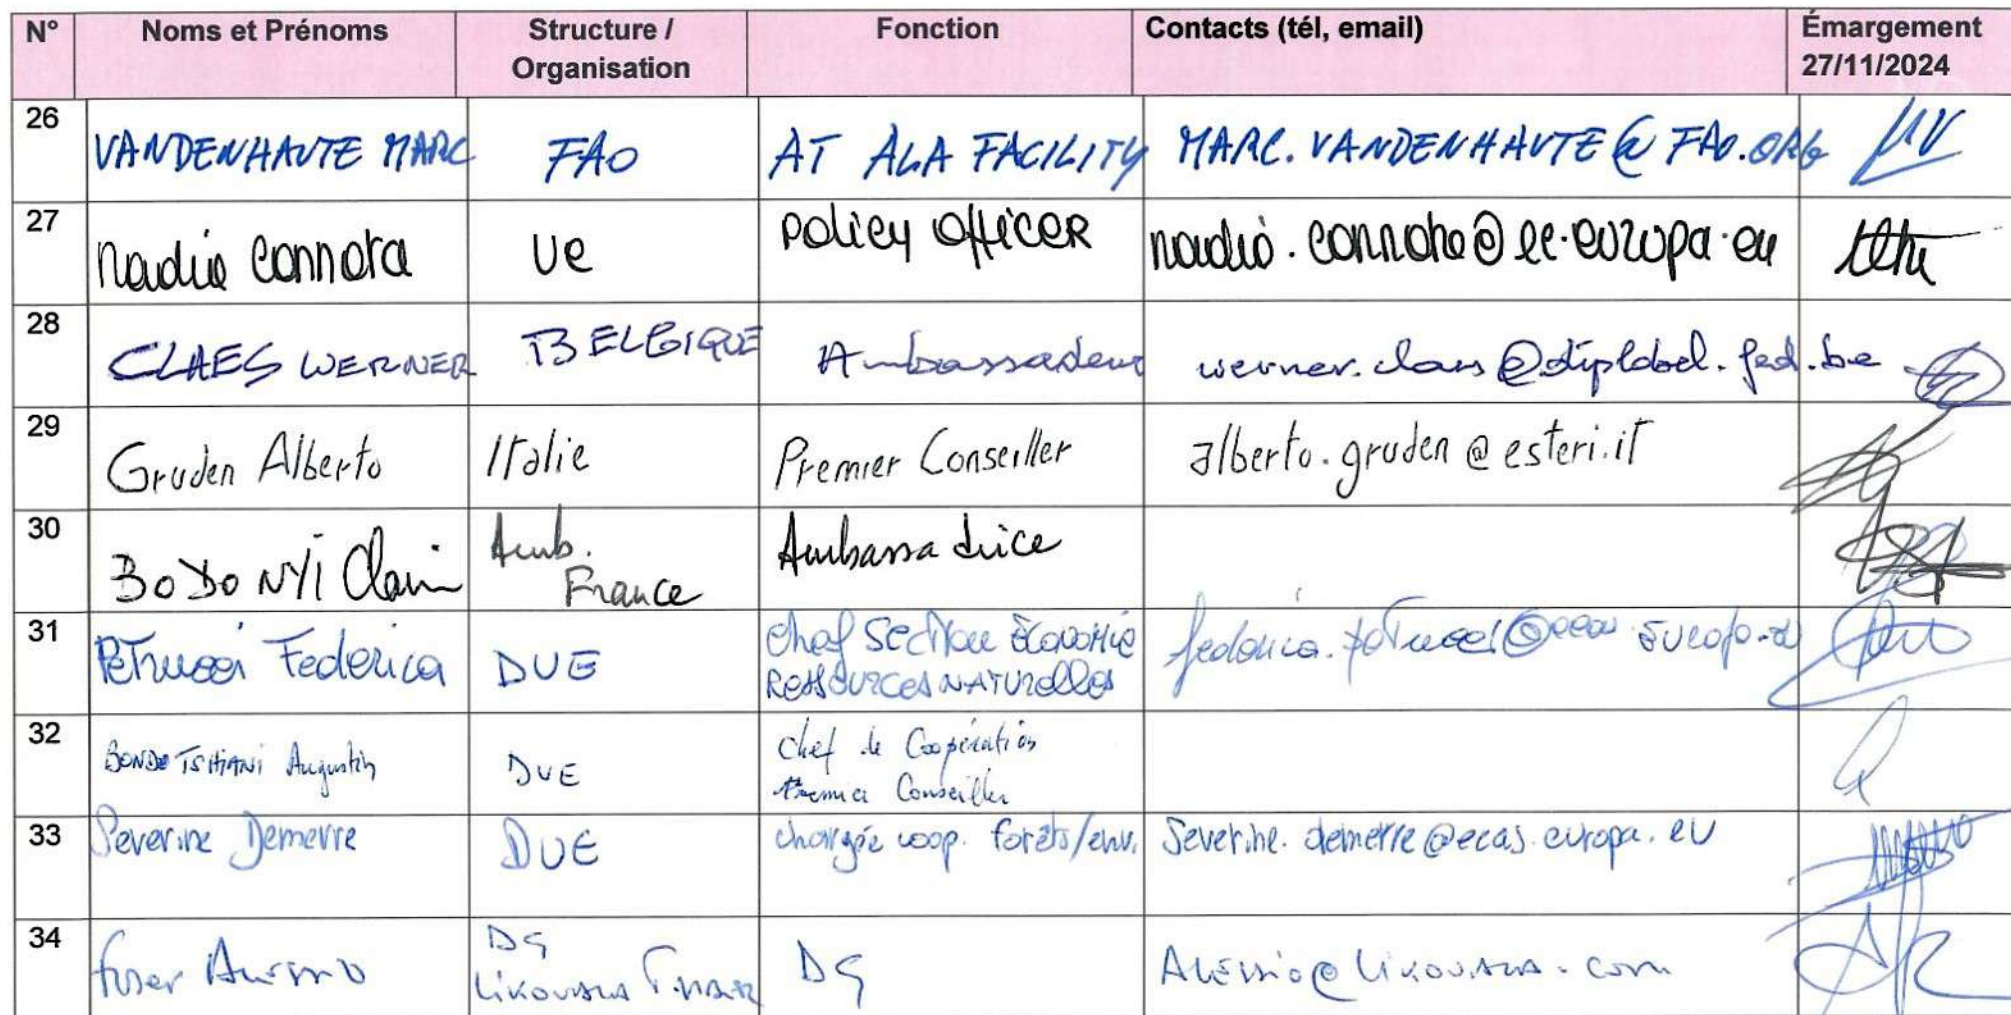 N° Noms et Prénoms Structure / Organisation Fonction Contacts (tél, email) Émargement 27/11/2024
26 VANDENHAUTE MARC FAO AT ALA FACILITY MARC.VANDENHAUTE@FAO.ORG
27 nadia connota UE policy officer @ec.europa.eu
28 CLAES WERNER BELGIQUE Ambassadeur werner.claes@diplobel.fed.be
29 Gruden Alberto Italie Premier Conseiller alberto.gruden@esteri.it
30 BODONYI Amb. France Ambassadrice
31 Petrucci Federica DUE Chef Section Économie Ressources Naturelles
32 BONDO TSHIANI Augustin DUE Chef de Coopération Premier Conseiller
33 Severine Demerre DUE chargée coop. forêts/env. Severine.demerre@ecas.europa.eu
34 DG DG